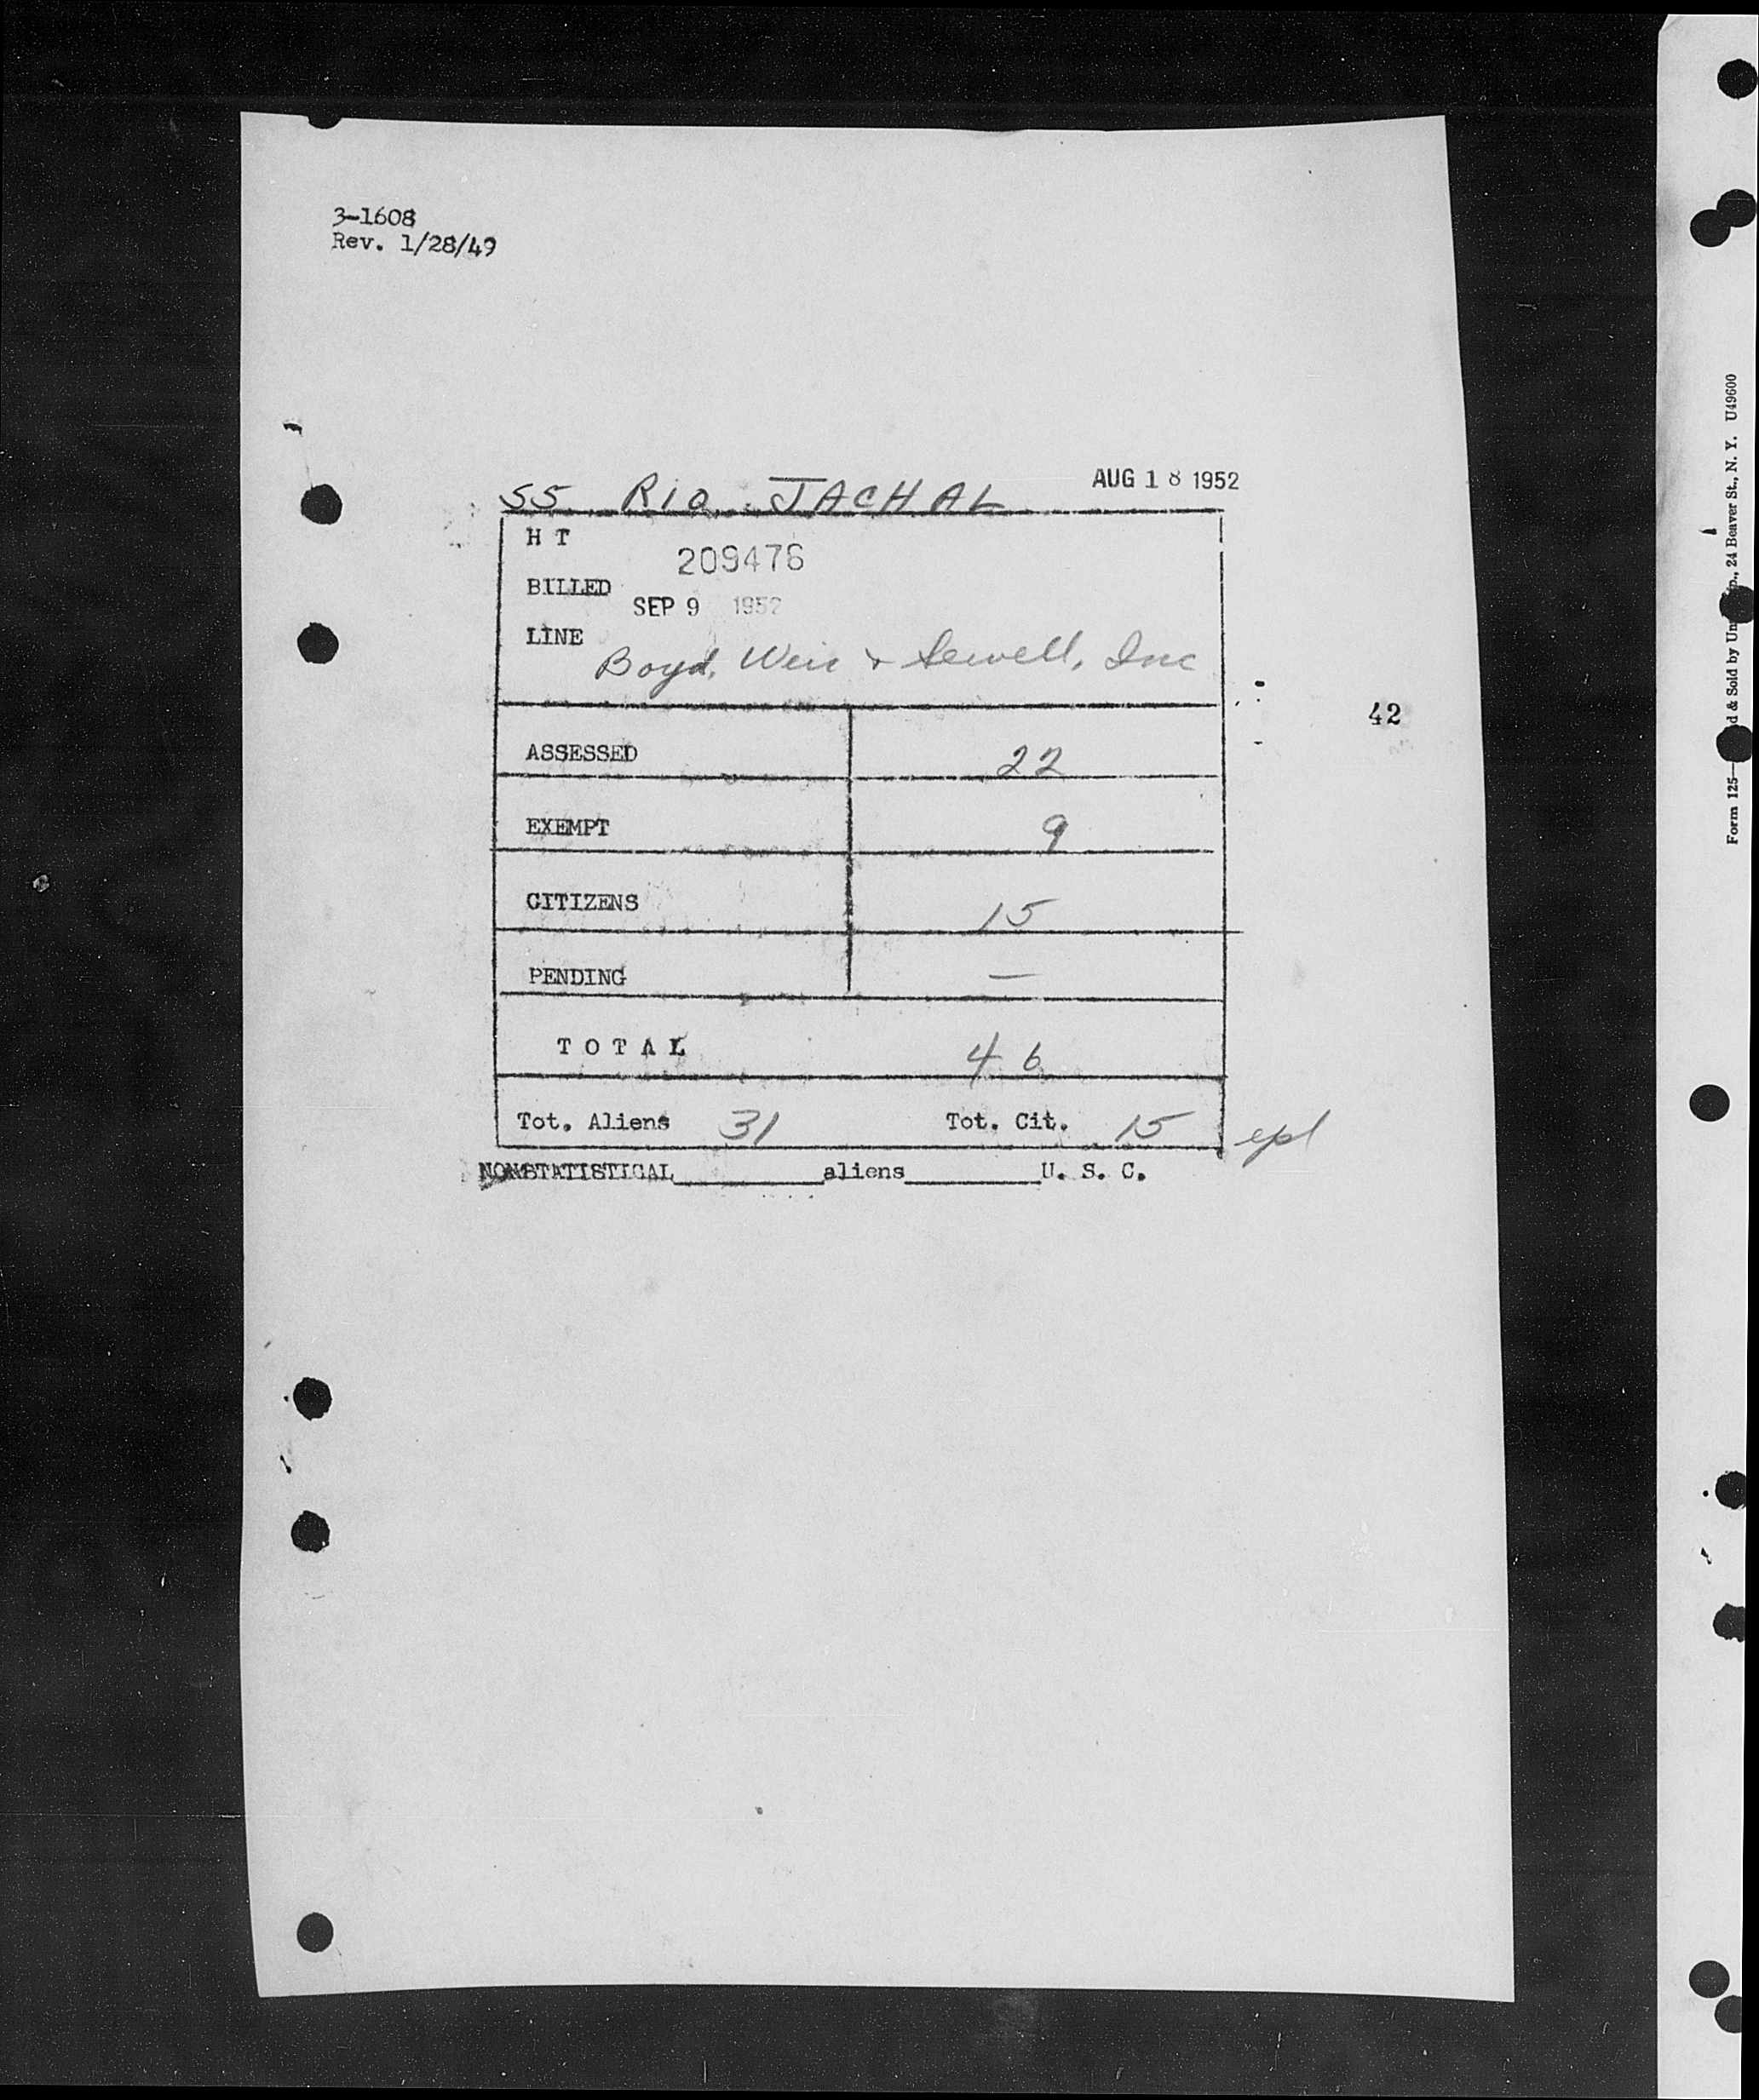 3-1608
Rev. 1/28/49
AUG 18 1952
SS RIO JACHAL
H T
209476
BILLED
SEP 9 1952
LINE
Boyd, Weir & Sewell, Inc
42
ASSESSED 22
EXEMPT 9
CITIZENS 15
PENDING —
TOTAL 46
Tot. Aliens 31 Tot. Cit. 15 epl
NONSTATISTICAL________aliens________U. S. C.
Form 125— d & Sold by Un 24 Beaver St., N. Y. U49600